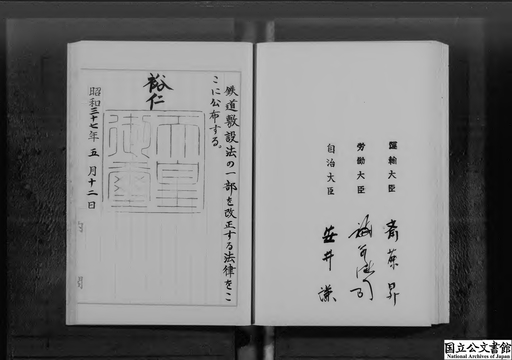 鉄道敷設法の一部を改正する法律をこ
こに公布する。
裕仁
天皇
御璽
昭和三十七年五月十二日
運輸大臣 斎藤昇
労働大臣 福永健司
自治大臣 安井謙
国立公文書館
National Archives of Japan